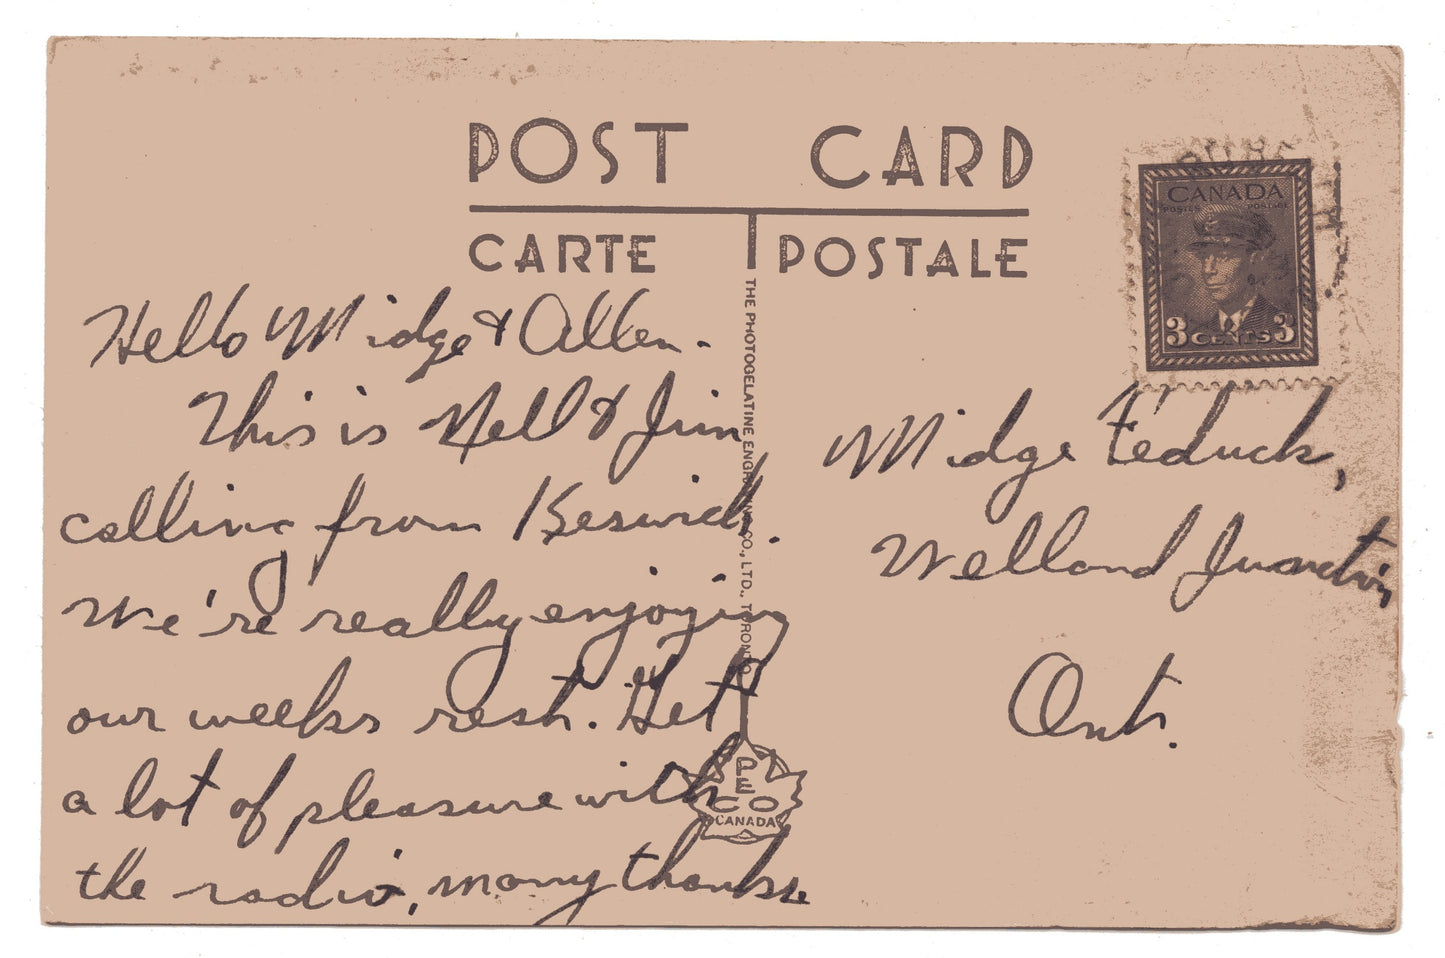 POST CARD
CARTE POSTALE
CANADA
POSTES POSTAGE
3 CENTS 3
Hello Midge & Allen.
This is Nell & Jim
calling from Keswick.
We're really enjoying
our weeks rest. Get
a lot of pleasure with
the radio, many thanks.
THE PHOTOGELATINE ENGRAVING CO., LTD., TORONTO
PECO
CANADA
Midge Feduck,
Welland Junction
Ont.